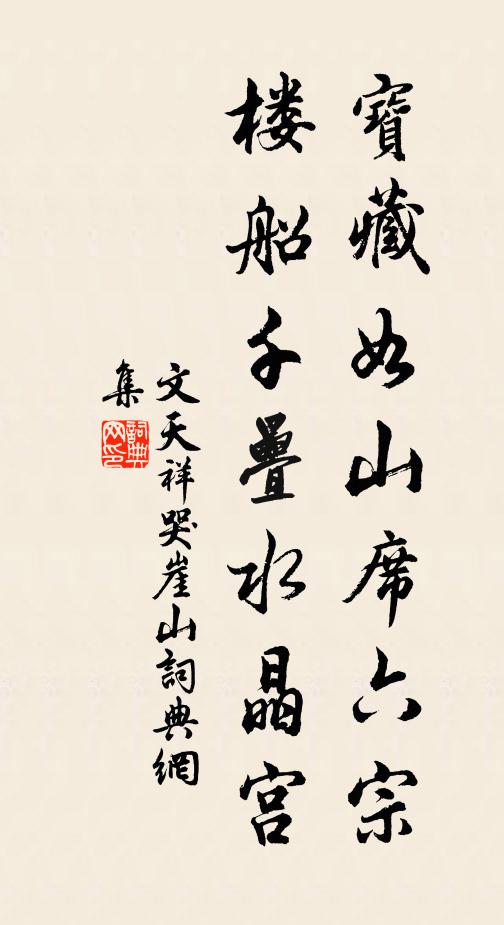 寶藏如山席六宗
楼船千疊水晶宫
文天祥哭崖山詞典網
集
詞典网印